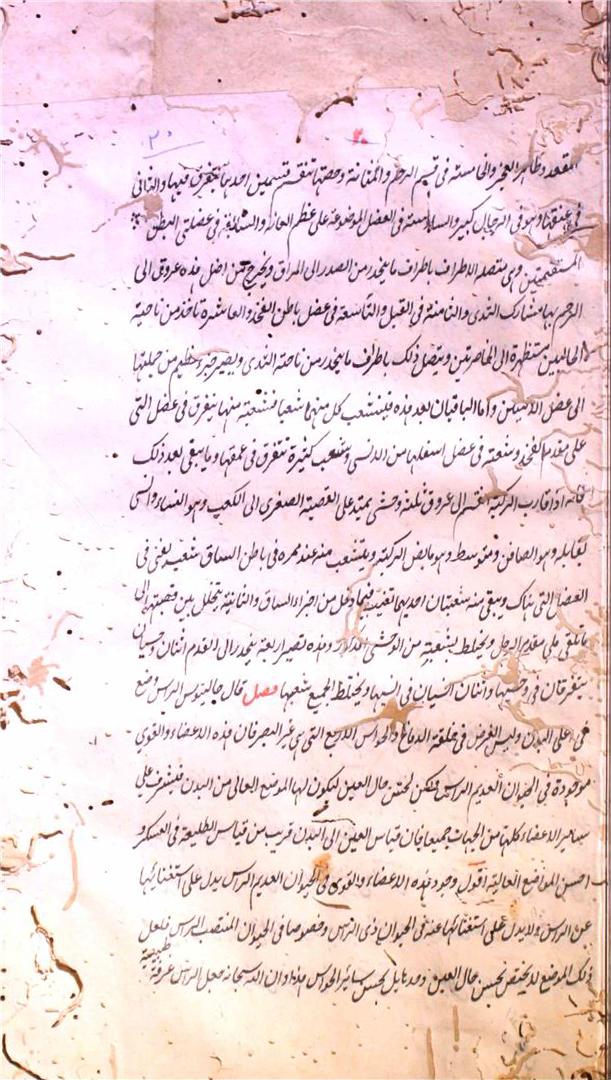 ٢٠ ٢٠
المقعد وظاهر العجز والخامسة في قسم الرحم والمثانة وحصتها تنقسم قسمين احدهما يتفرق فيها والثاني
في عنقها وهو في الرجال كبير والسادسة في العضل الموضوعة على عظم العانة والسابعة في عضلتي البطن
المستقيمتين وهي تتصل الاطراف باطراف ما ينحدر من الصدر الى المراق ويخرج من اصل هذه عروق الى
الرحم بها مشارك الثدي والثامنة في القبل والتاسعة في عضل باطن الفخذ والعاشرة تاخذ من ناحية
الحالبين مستظهرة الى الخاصرتين ويتصل ذلك باطراف ما ينحدر من ناحية الثدي ويصير جزء عظيم من جملتها
الى عضل الانثيين واما الباقيان بعد هذه فليتشعب كل منهما شعبا فشعبة منها يتفرق في عضل التي
على مقدم الفخذ وشعبة في عضل اسفلها من الانسي وشعب كثيرة تتفرق في عمقها وما يبقى بعد ذلك
فانه اذا قارب الركبة انقسم الى عروق ثلثة وحشي يمتد على القصبة الصغرى الى الكعب وهو النساء وانسي
يقابله وهو الصافن ومتوسط وهو مابض الركبة ويتشعب منه عند ممره في باطن الساق شعب يفنى في
العضل التي هناك ويبقى منه شعبتان احديهما تغيب فيما دخل من اجزاء الساق والثانية يتخلل بين قصبتيه الى
ما تلقى على مقدم الرجل ويختلط بشعبة من الوحشي المذكور وهذه تصير اربعة ينحدر الى القدم اثنان وحشيان
يتفرقان في وحشيها واثنان انسيان في انسيها ويختلط الجميع شعبها فصل قال جالينوس الراس وضع
في اعلى البدن وليس الغرض في خلقة الدماغ والحواس الاربع التي هي غير البصر فان هذه الاعضاء والقوى
موجودة في الحيوان العديم الراس ولكن لحسن حال العين ليكون لها الموضع العالي من البدن فليشرف على
ساير الاعضاء كلها من الجهات جميعا فان قياس العين الى البدن قريب من قياس الطليعة في العسكر و
احسن المواضع العالية اقول وجود هذه الاعضاء والقوى في الحيوان العديم الراس يدل على استغنائها
عن الراس ولا يدل على استغنائها عنه في الحيوان ذي الراس وخصوصا في الحيوان المنتصب الراس فلعل
ذلك الموضع لا يختص بحسن حال العين وحدها بل بحسن ساير الحواس هذا وان الله سبحانه جعل الراس غرفة
طبيعية